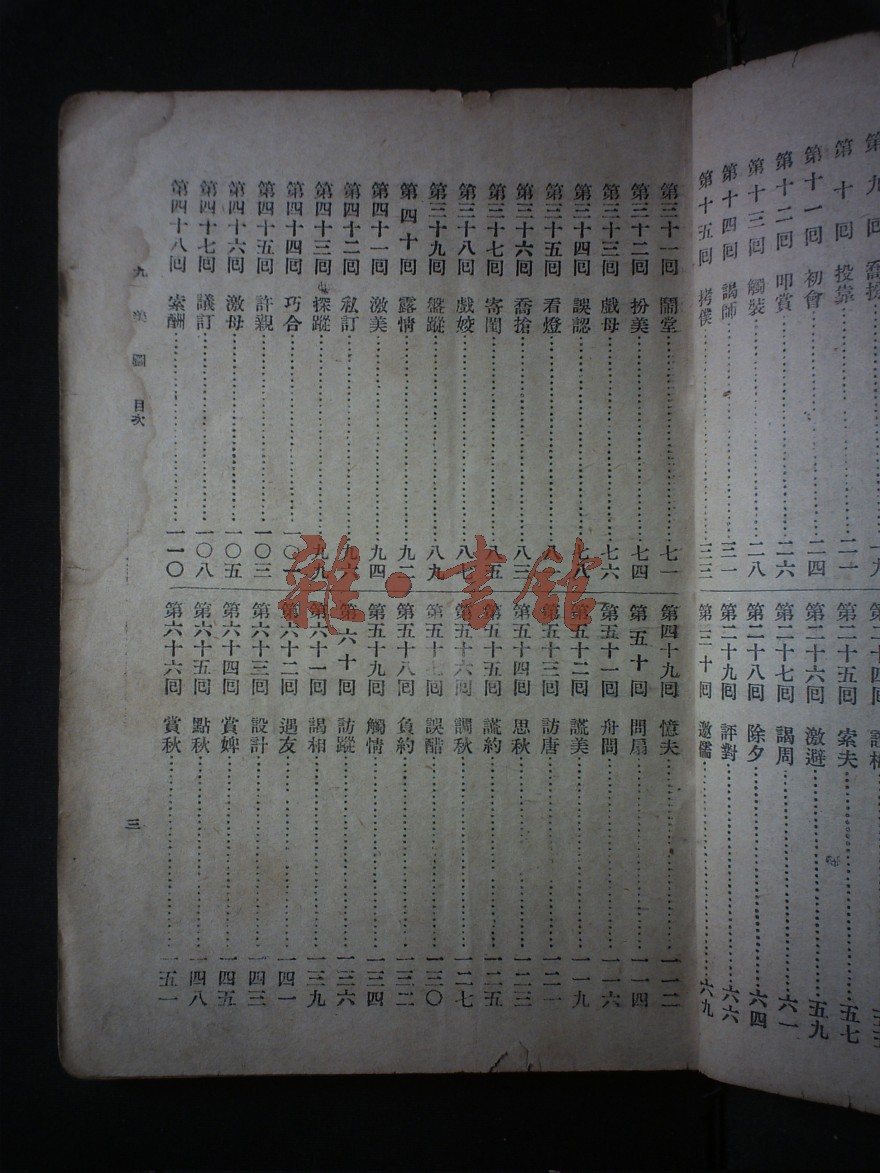 第十回 投靠……二一
第十一回 初會……二四
第十二回 叩賞……二六
第十三回 觸裝……二八
第十四回 謁師……三一
第十五回 拷僕……三三
第二十五回 索夫……五七
第二十六回 激避……五九
第二十七回 謁周……六一
第二十八回 除夕……六四
第二十九回 評對……六六
第三十回 邀儒……六九
第三十一回 鬧堂……七一
第三十二回 扮美……七四
第三十三回 戲母……七六
第三十四回 誤認……七八
第三十五回 看燈……八一
第三十六回 喬搶……八三
第三十七回 寄閨……八五
第三十八回 戲姣……八七
第三十九回 盤蹤……八九
第四十回 露情……九二
第四十一回 激美……九四
第四十二回 私訂……九六
第四十三回 探蹤……九九
第四十四回 巧合……一〇一
第四十五回 許親……一〇三
第四十六回 激母……一〇五
第四十七回 議訂……一〇八
第四十八回 索酬……一一〇
第四十九回 憶夫……一一二
第五十回 問扇……一一四
第五十一回 舟問……一一六
第五十二回 謊美……一一九
第五十三回 訪唐……一二一
第五十四回 思秋……一二三
第五十五回 謊約……一二五
第五十六回 調秋……一二七
第五十七回 誤醋……一三〇
第五十八回 負約……一三二
第五十九回 觸情……一三四
第六十回 訪蹤……一三六
第六十一回 謁相……一三九
第六十二回 遇友……一四一
第六十三回 設計……一四三
第六十四回 賞婢……一四五
第六十五回 點秋……一四八
第六十六回 賞秋……一五一
九美圖 目次
三
雜·書館